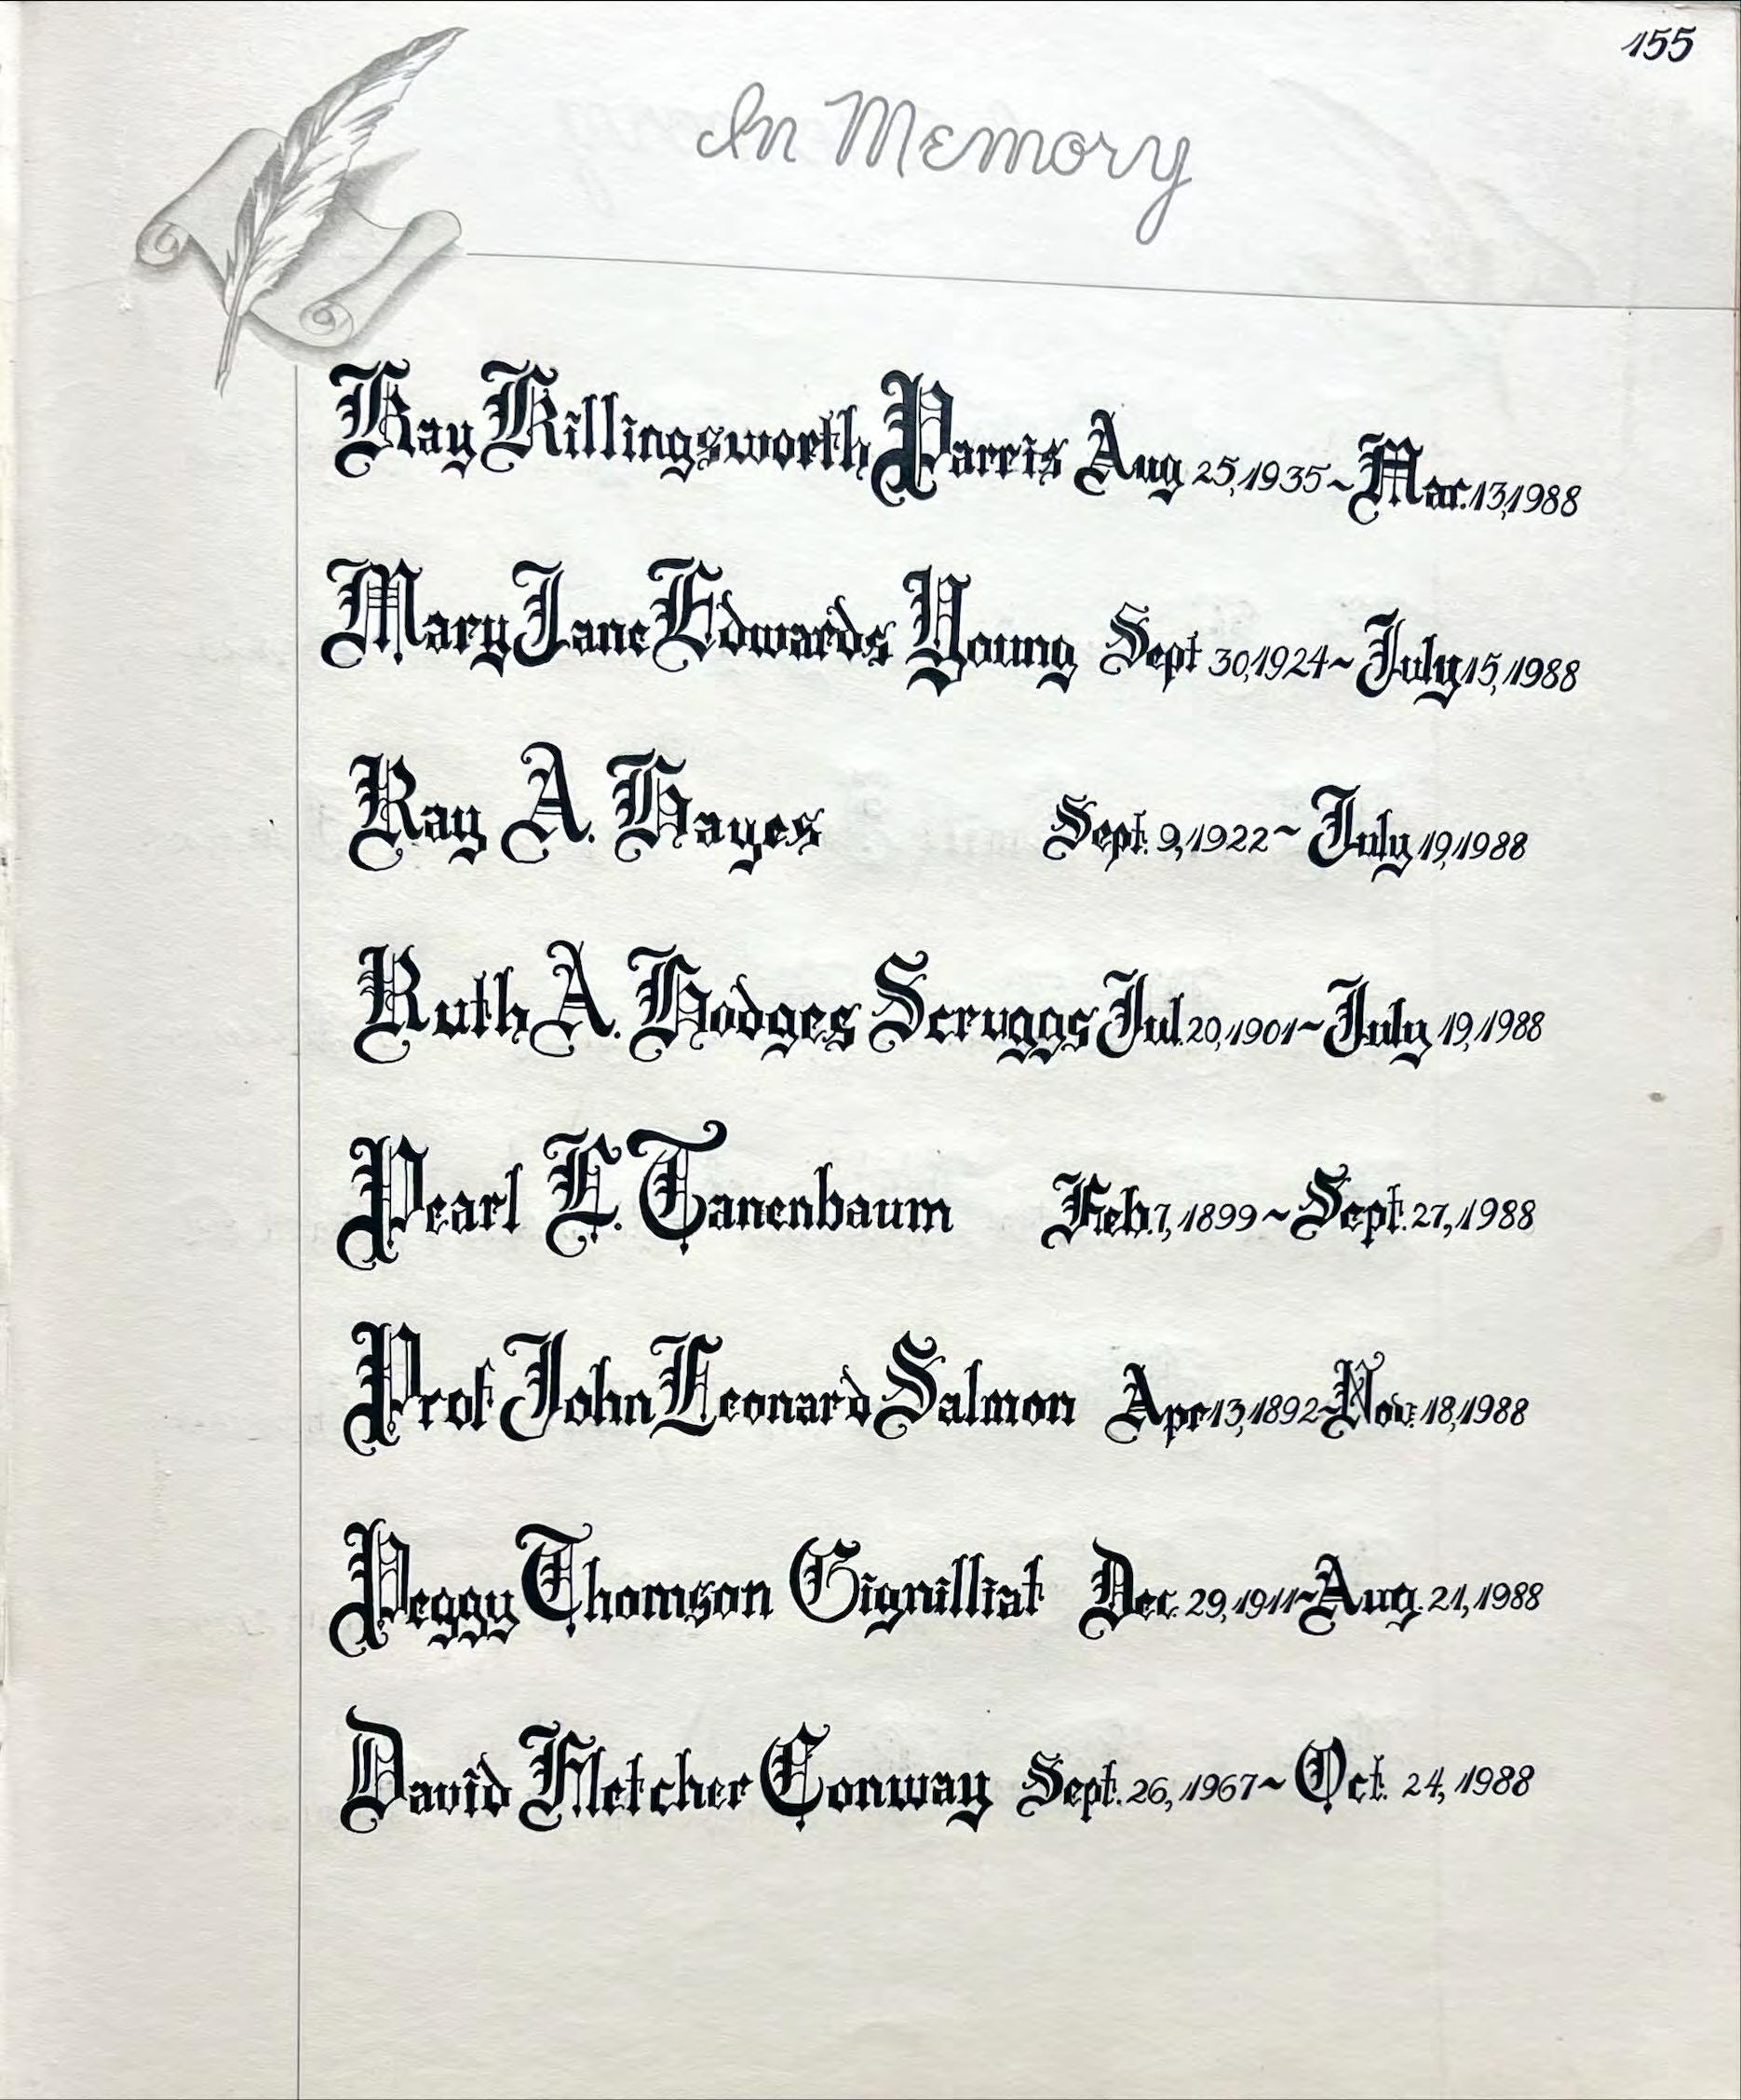 155
In Memory
Kay Killingsworth Parris Aug 25, 1935 ~ Mar. 13, 1988
Mary Jane Edwards Young Sept 30, 1924 ~ July 15, 1988
Ray A. Hayes Sept. 9, 1922 ~ July 19, 1988
Ruth A. Hodges Scruggs Jul. 20, 1901 ~ July 19, 1988
Pearl E. Tanenbaum Feb. 7, 1899 ~ Sept. 27, 1988
Prof John Leonard Salmon Apr 13, 1892 ~ Nov. 18, 1988
Peggy Thomson Gignilliat Dec. 29, 1911 ~ Aug. 21, 1988
David Fletcher Conway Sept. 26, 1967 ~ Oct. 24, 1988